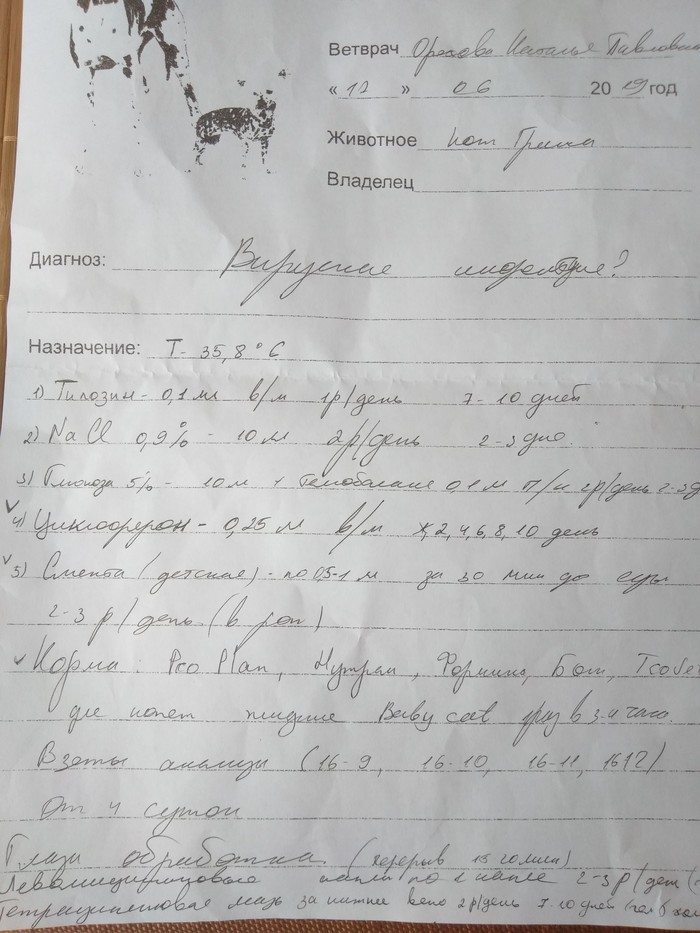 Ветврач Орехова Наталья Павловна
« 12 » 06 2019 год
Животное кот Гриша
Владелец
Диагноз: Вирусные инфекция?
Назначение: T- 35,8°C
1) Тилозин - 0,1 мл в/м 1р/день 7-10 дней
2) NaCl 0,9% - 10 м 2р/день 2-3 дня.
3) Глюкоза 5% - 10 м + Гемобаланс 0,1 м п/к 2р/день 2-3д
4) Циклоферон - 0,25 м в/м 1, 2, 4, 6, 8, 10 день
5) Смекта (детская) - по 0,5-1 м за 30 мин до еды
2-3 р/день (в рот)
Корма: Pro Plan, Нутрам, Бош,
для котят Baby cat 3-4 часа
Взяты анализы (16-9, 16-10, 16-11, 1612)
От 4 суток
Глаза обработка (перерыв 15 мин)
Левомицитиновые капли по 1 капле 2-3 р/день
Тетрациклиновая мазь за нижнее веко 2р/день 7-10 дней